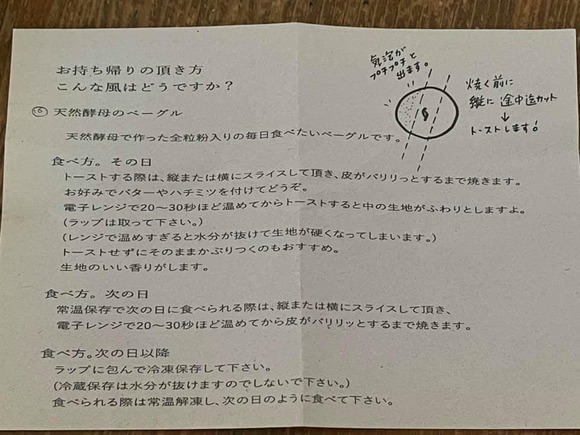 お持ち帰りの頂き方
こんな風はどうですか？
気泡が
プチプチと
出ます。
焼く前に
縦に途中迄カット
↓
トーストします!
⑥ 天然酵母のベーグル
天然酵母で作った全粒粉入りの毎日食べたいベーグルです。
食べ方。その日
トーストする際は、縦または横にスライスして頂き、皮がパリリっとするまで焼きます。
お好みでバターやハチミツを付けてどうぞ。
電子レンジで20～30秒ほど温めてからトーストすると中の生地がふわりとしますよ。
(ラップは取って下さい。)
(レンジで温めすぎると水分が抜けて生地が硬くなってしまいます。)
トーストせずにそのままかぶりつくのもおすすめ。
生地のいい香りがします。
食べ方。次の日
常温保存で次の日に食べられる際は、縦または横にスライスして頂き、
電子レンジで20～30秒ほど温めてから皮がパリリッとするまで焼きます。
食べ方。次の日以降
ラップに包んで冷凍保存して下さい。
(冷蔵保存は水分が抜けますのでしないで下さい。)
食べられる際は常温解凍し、次の日のように食べて下さい。